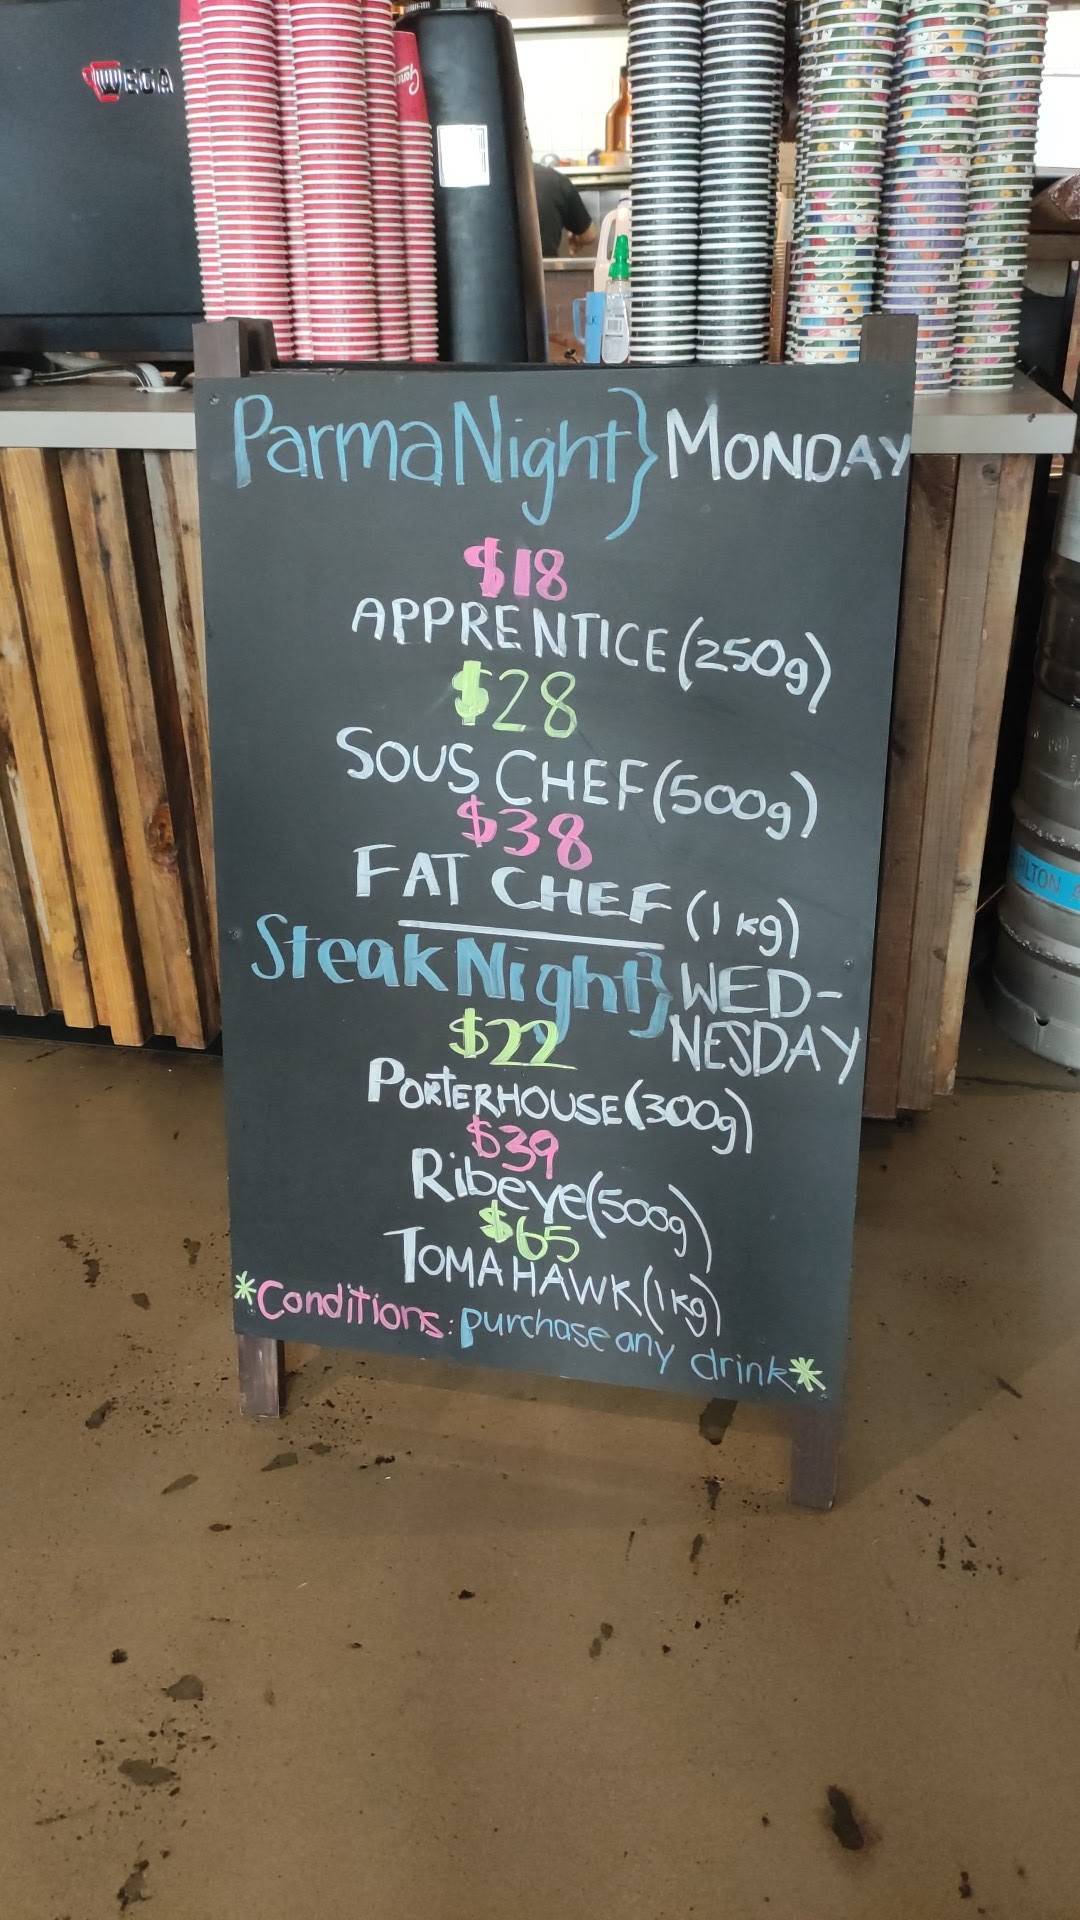 WEGA
Parma Night} MONDAY
$18
APPRENTICE (250g)
$28
SOUS CHEF (500g)
$38
FAT CHEF (1kg)
Steak Night} WED-
NESDAY
$22
PORTERHOUSE (300g)
$39
Ribeye (500g)
$65
TOMAHAWK (1kg)
*Conditions: purchase any drink*